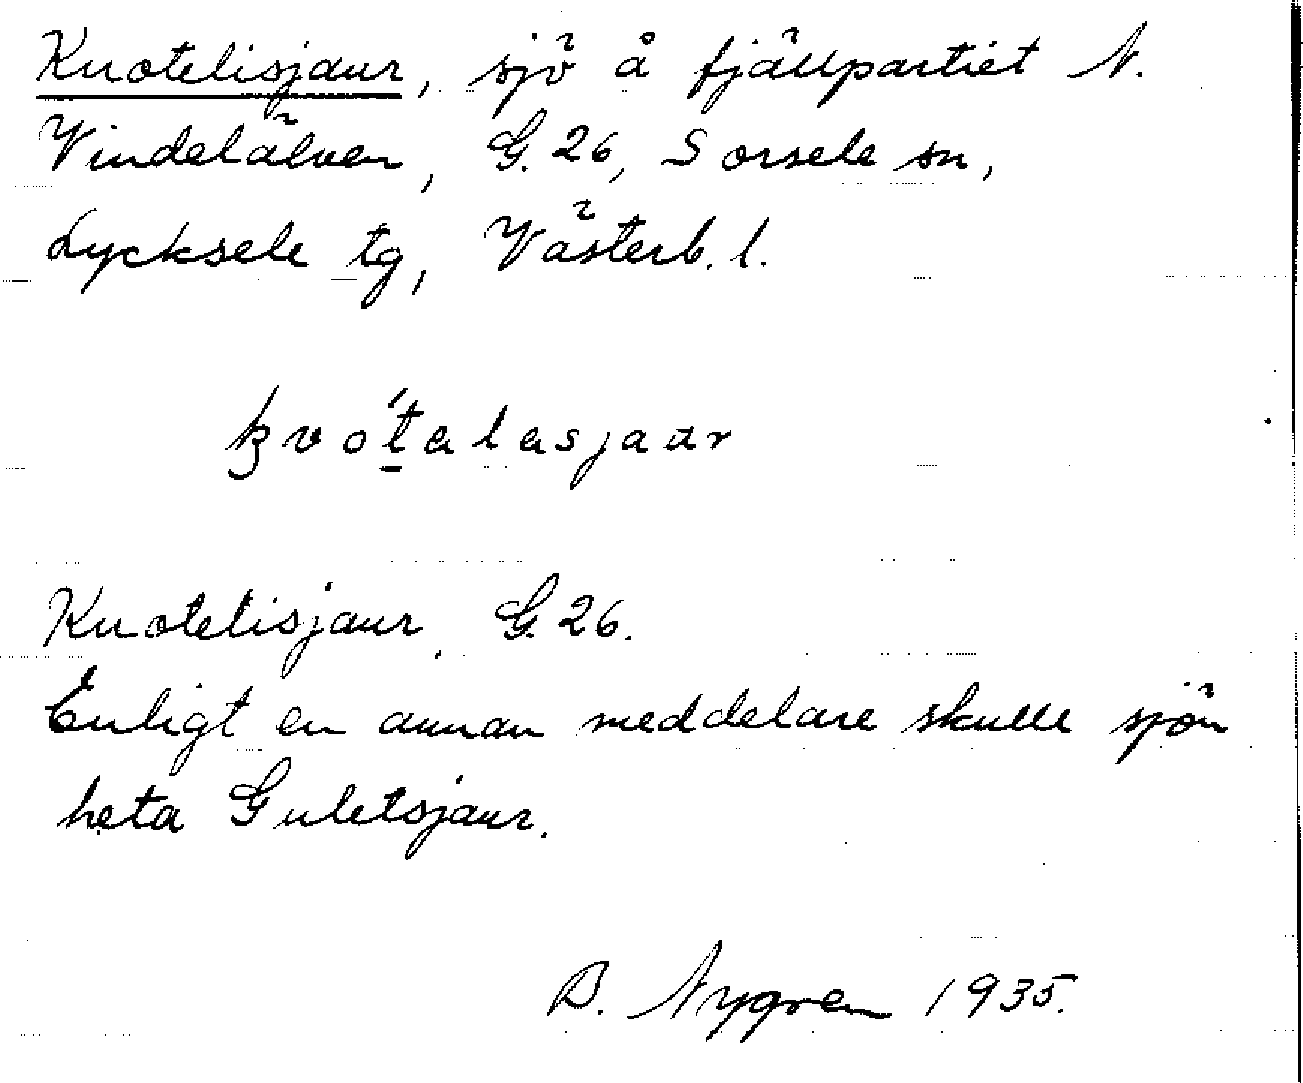 Kuotelisjaur, sjö å fjällpartiet N.
Vindelälven, G. 26, Sorsele sn,
Lycksele tg, Västerb. l.
Kuotelisjaur, G. 26.
Enligt en annan meddelare skulle sjön
heta Guletsjaur.
B. Nygren 1935.